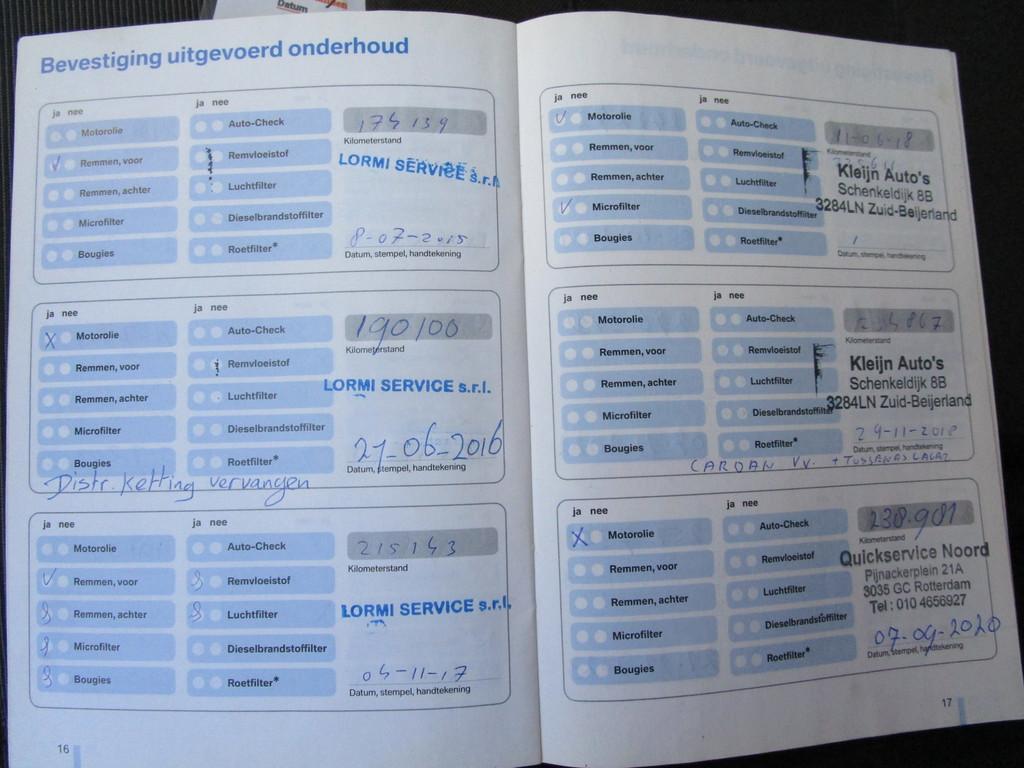 Datum
Bevestiging uitgevoerd onderhoud
ja nee
ja nee
Motorolie
Auto-Check
174 139
Kilometerstand
Remmen, voor
Remvloeistof
LORMI SERVICE s.r.l.
Remmen, achter
Luchtfilter
Microfilter
Dieselbrandstoffilter
8-07-2015
Bougies
Roetfilter*
Datum, stempel, handtekening
ja nee
ja nee
X Motorolie
Auto-Check
190100
Kilometerstand
Remmen, voor
Remvloeistof
LORMI SERVICE s.r.l.
Remmen, achter
Luchtfilter
Microfilter
Dieselbrandstoffilter
21-06-2016
Bougies
Roetfilter*
Datum, stempel, handtekening
Distr. Ketting vervangen
ja nee
ja nee
Motorolie
Auto-Check
215143
Kilometerstand
Remmen, voor
Remvloeistof
Remmen, achter
Luchtfilter
LORMI SERVICE s.r.l.
Microfilter
Dieselbrandstoffilter
04-11-17
Bougies
Roetfilter*
Datum, stempel, handtekening
16
ja nee
ja nee
Motorolie
Auto-Check
11-06-18
Kilometerstand
Remmen, voor
Remvloeistof
Kleijn Auto's
Remmen, achter
Luchtfilter
Schenkeldijk 8B
Microfilter
Dieselbrandstoffilter
3284LN Zuid-Beijerland
Bougies
Roetfilter*
Datum, stempel, handtekening
ja nee
ja nee
Motorolie
Auto-Check
Kilometerstand
Remmen, voor
Remvloeistof
Kleijn Auto's
Remmen, achter
Luchtfilter
Schenkeldijk 8B
Microfilter
Dieselbrandstoffilter
3284LN Zuid-Beijerland
29-11-2018
Bougies
Roetfilter*
Datum, stempel, handtekening
CARDAN VV. +
ja nee
ja nee
X Motorolie
Auto-Check
238.981
Kilometerstand
Remmen, voor
Remvloeistof
Quickservice Noord
Pijnackerplein 21A
Remmen, achter
Luchtfilter
3035 GC Rotterdam
Tel : 010 4656927
Microfilter
Dieselbrandstoffilter
07-09-2020
Bougies
Roetfilter*
Datum, stempel, handtekening
17